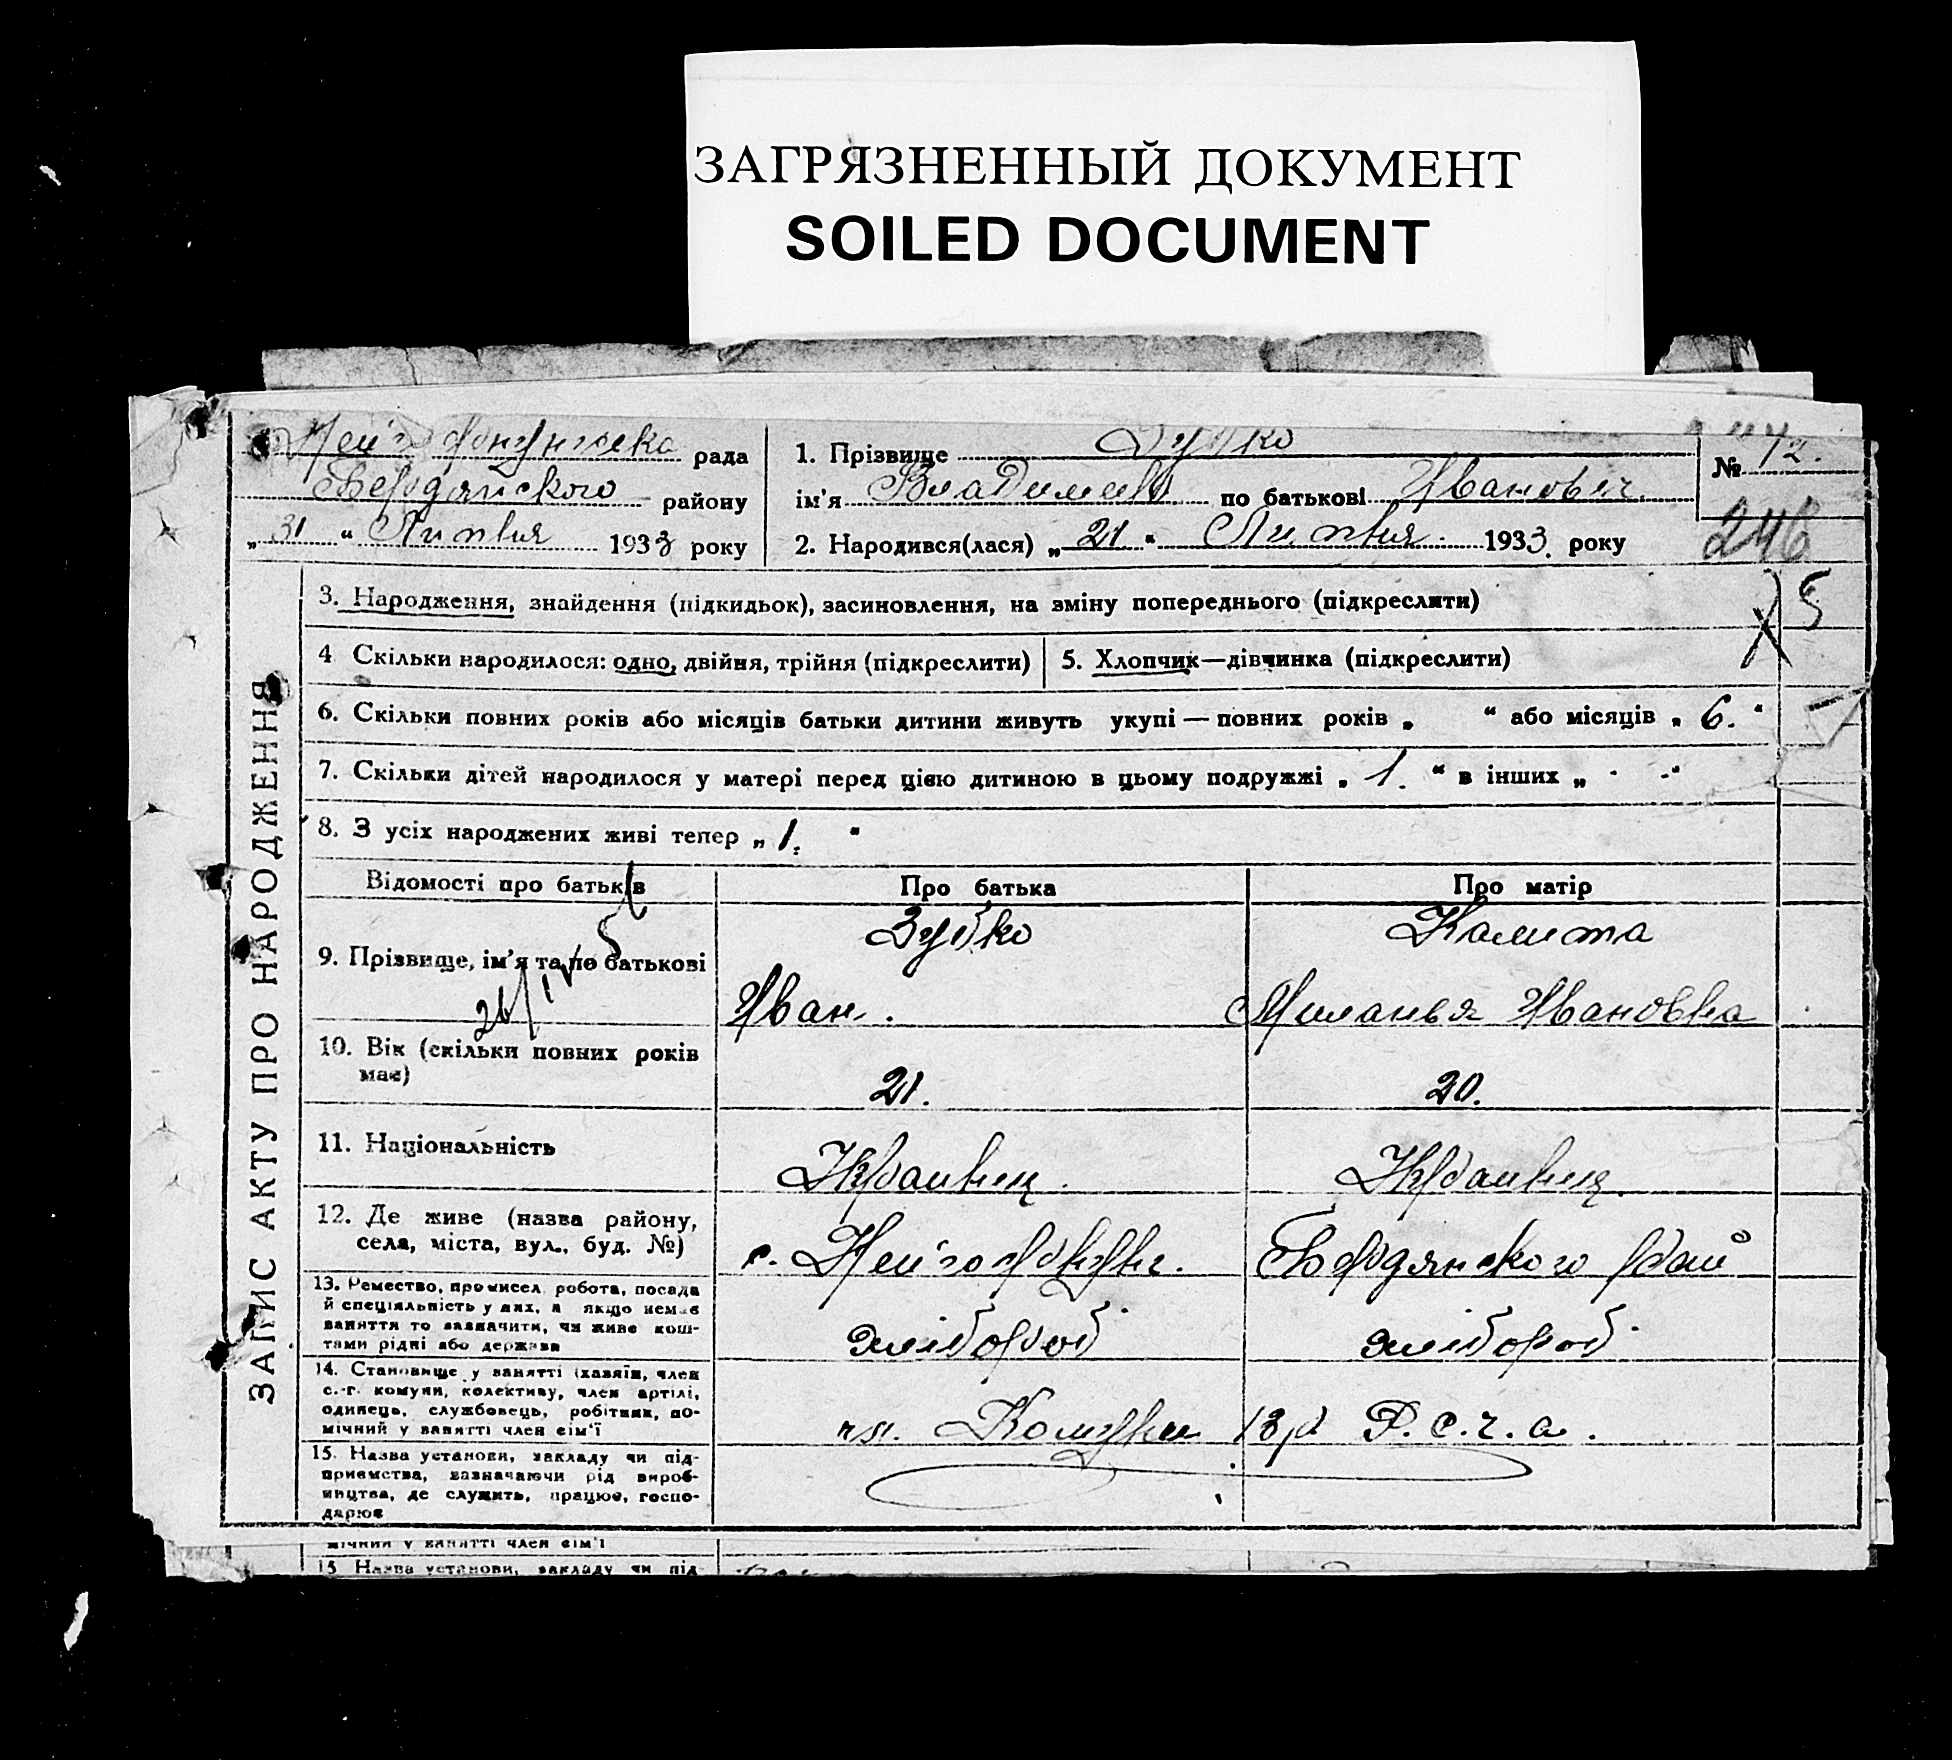 ЗАГРЯЗНЕННЫЙ ДОКУМЕНТ
SOILED DOCUMENT
рада
Бердянского району
„31“ Липвня 1933 року
1. Прізвище Зубко
ім'я Владимир по батькові Иванович
2. Народився(лася) „21“ Липвня 1933. року
№ 72.
246
ЗАПИС АКТУ ПРО НАРОДЖЕННЯ
3. Народження, знайдення (підкидьок), засиновлення, на зміну попереднього (підкреслити)
4 Скільки народилося: одно, двійня, трійня (підкреслити)
5. Хлопчик—дівчинка (підкреслити)
6. Скільки повних років або місяців батьки дитини живуть укупі — повних років „ “ або місяців „ 6. “
7. Скільки дітей народилося у матері перед цією дитиною в цьому подружжі „ 1. “ в інших „ - -“
8. З усіх народжених живі тепер „ 1. “
Відомості про батьків
Про батька
Про матір
9. Прізвище, ім'я та по батькові
Зубко
Иван.
Калита
Миланья Ивановна
10. Вік (скільки повних років
має)
21.
20.
11. Національність
Украинец.
Украинец
12. Де живе (назва району,
села, міста, вул., буд. №)
с.
Бердянского рай
13. Ремество, промисел, робота, посада
й спеціяльність у них, а якщо немає
заняття то зазначити, чи живе кош-
тами рідні або держави
хлібороб
хлібороб
14. Становище у занятті (хазяїн, член
с.-г. комуни, колективу, член артілі,
одинець, службовець, робітник, по-
мічний у занятті член сім'ї
чл. Комуни 13 р Р.С.Ч.А.
15. Назва установи, закладу чи під-
приємства, зазначаючи рід вироб-
ництва, де служить, працює, госпо-
дарює
мічний у занятті член сім'ї
15 Назва установи, закладу чи під-